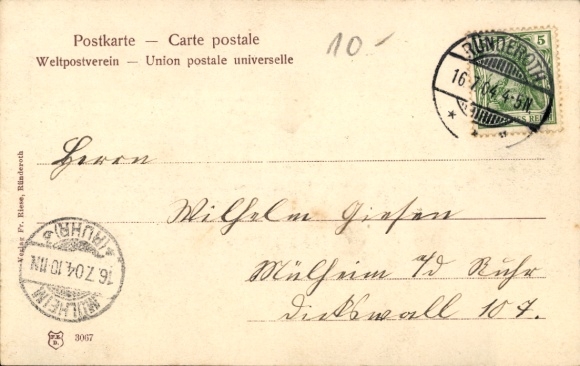 Postkarte — Carte postale
Weltpostverein — Union postale universelle
10-
5
RÜNDEROTH
16.7.04.4-5N.
Herrn
Wilhelm Giesen
Mülheim a/d Ruhr
Dickswall 107.
Verlag Fr. Riese, Ründeroth
MÜLHEIM
(RUHR)
16.7.04.10-11N
3067